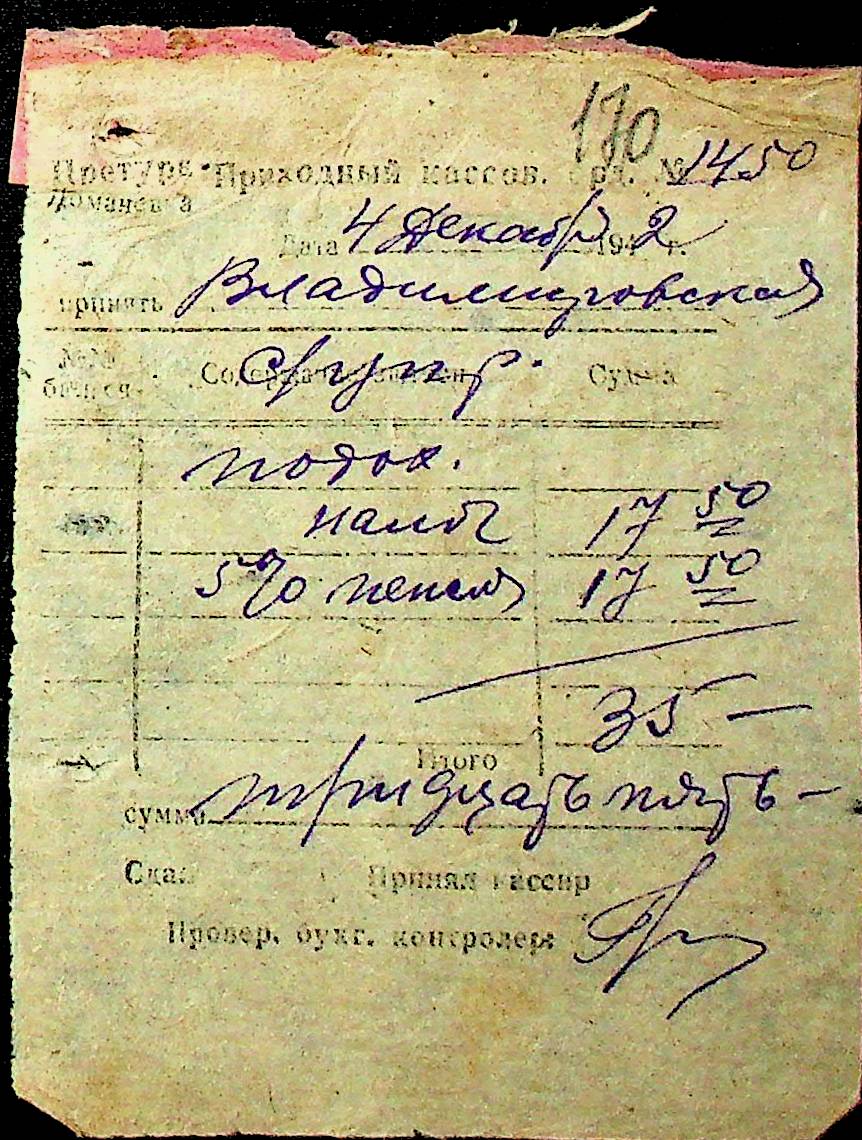 170
Претура Приходный кассов. орд. № 1450
Домановка
Дата 4 Декабря 1942 г.
принять Владимировская
с/упр.
№№ Содержание Сумма
подох.
налог 17 50
5% пенсия 17 50
35 —
Итого
сумма тридцать пять —
Сдал Принял кассир
Провер. бухг. контролер